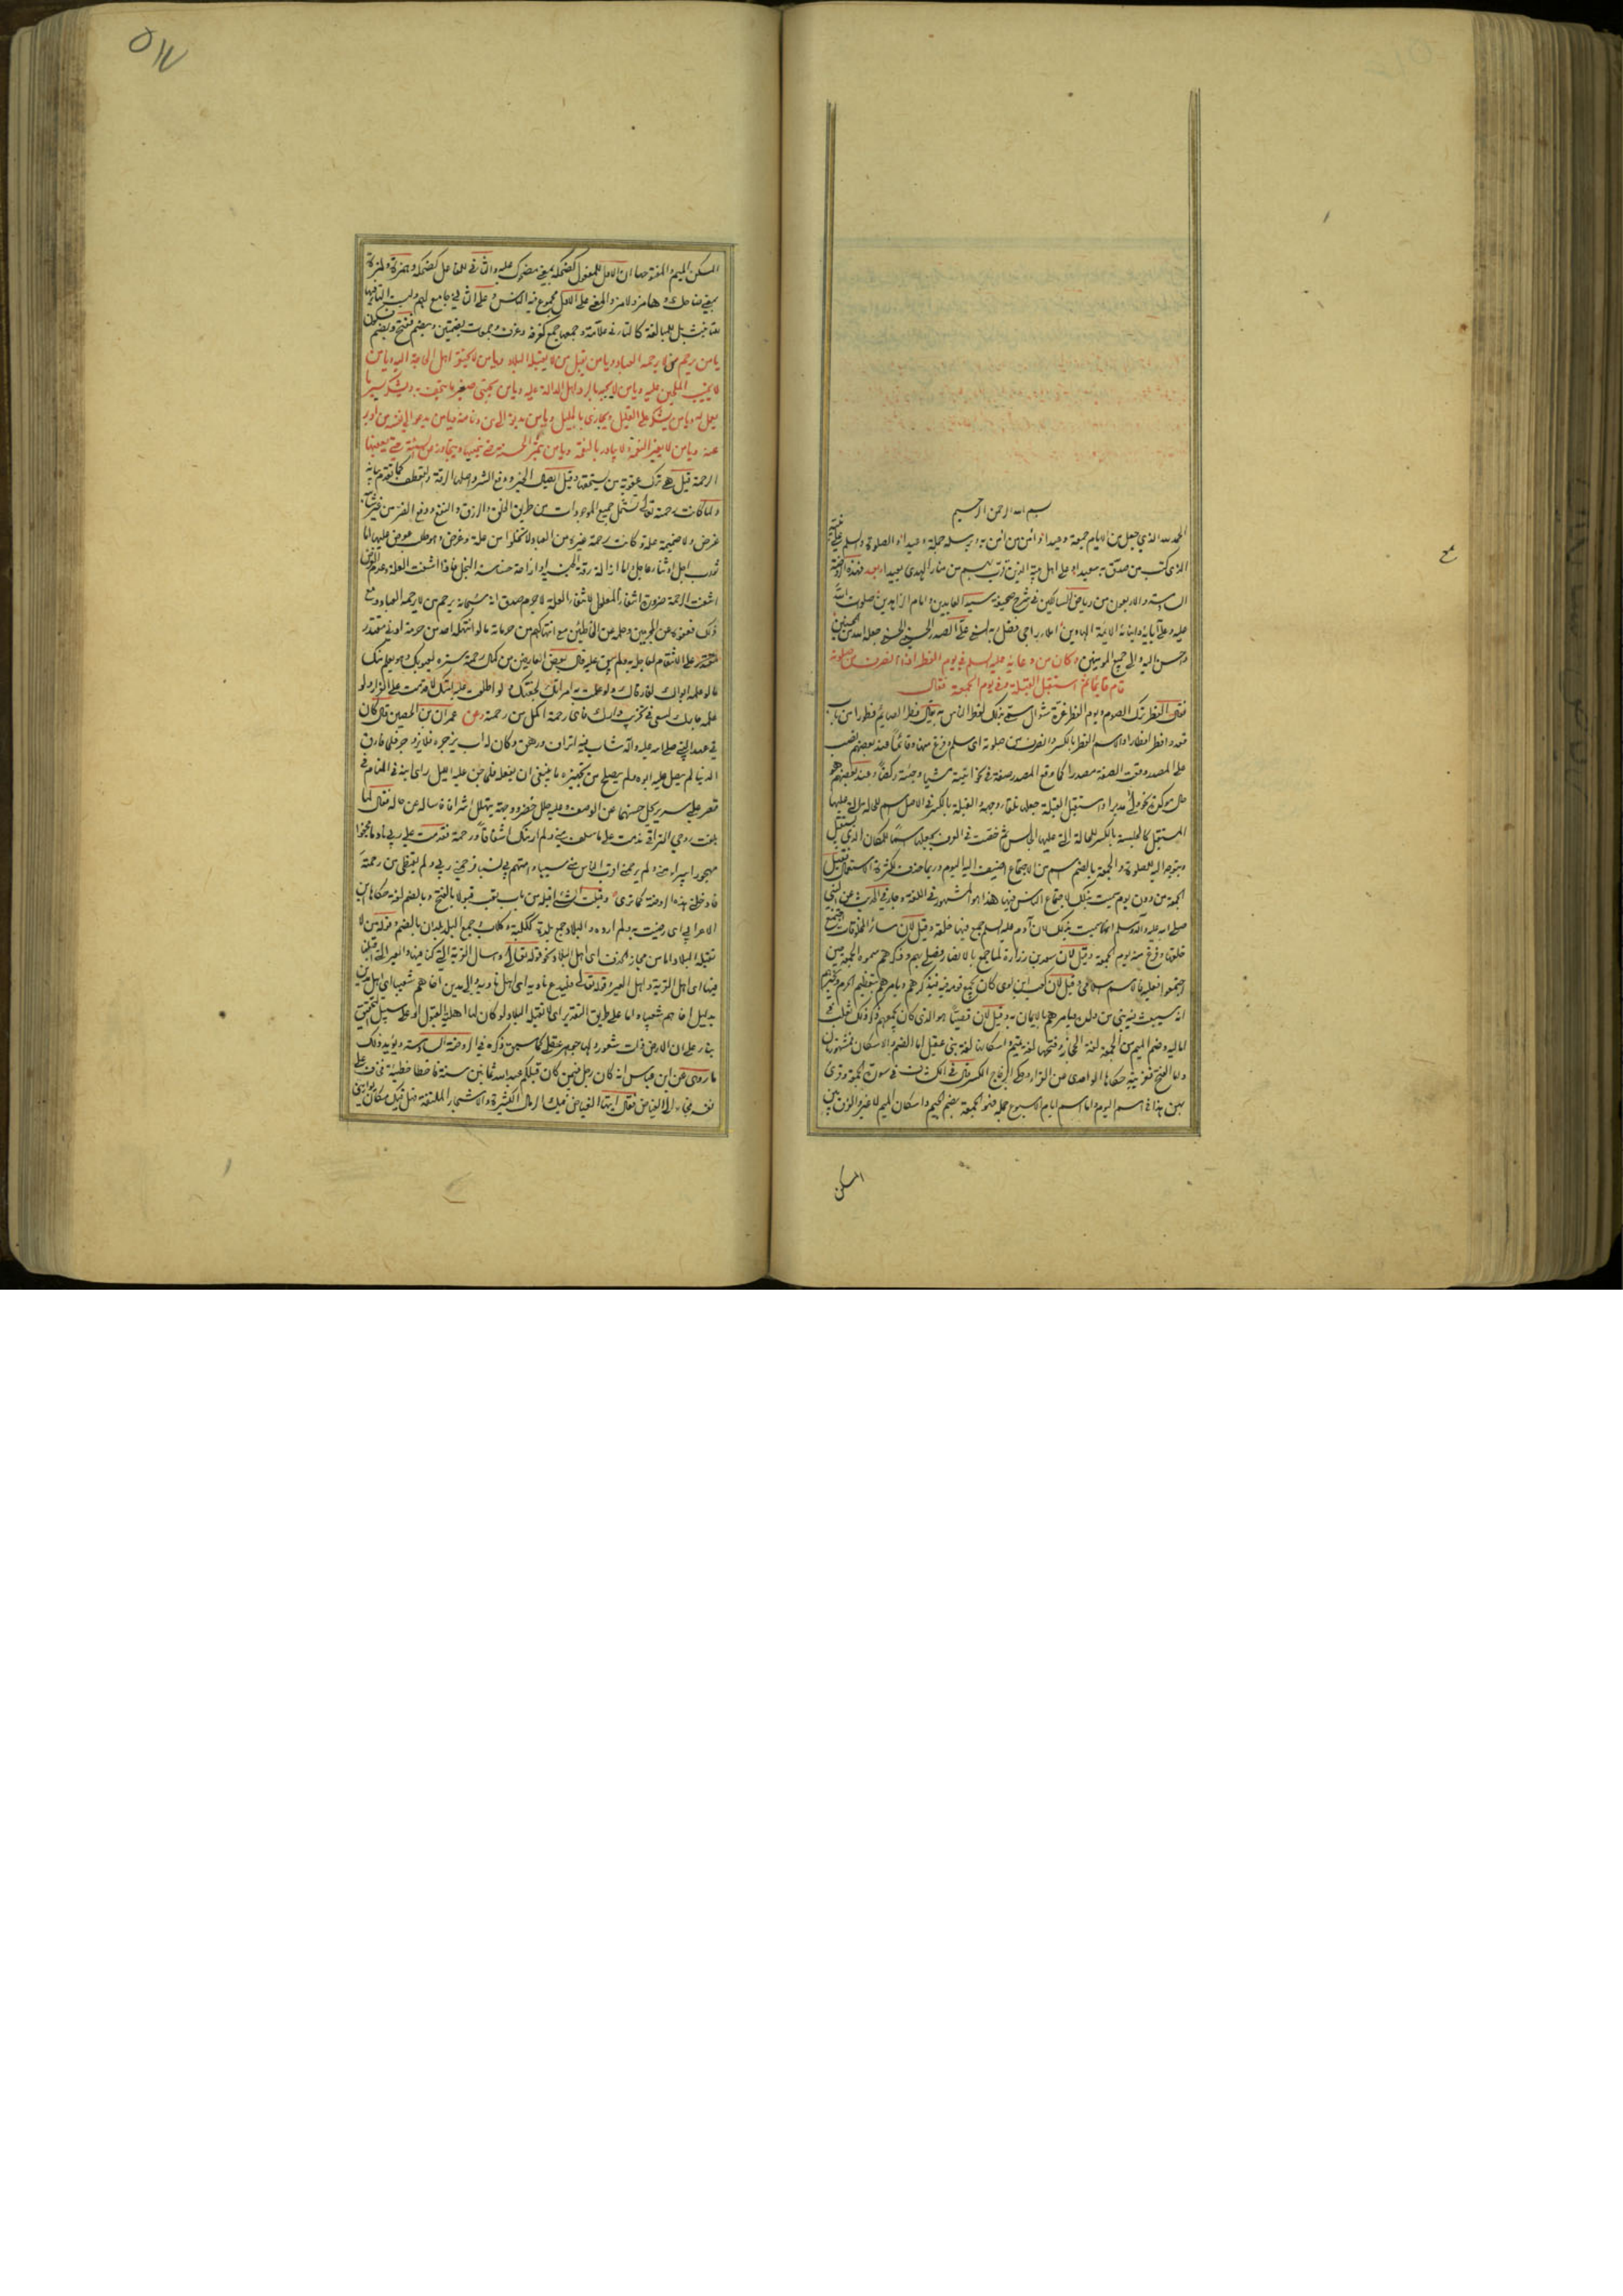 بسم الله الرحمن الرحيم
الحمد لله الذي جعل من الايام جمعة وعيدا والصلوة والسلام على
الذي كتب من صدق به سعيدا وعلى اهل بيته الذين من منار الهدى بعيدا وبعد فهذه الروضة
السادسة والاربعون من رياض السالكين في شرح صحيفة سيد العابدين وامام الزاهدين صلوات الله
عليه وعلى آبائه وابنائه الائمة الهادين املاء راجي فضل ربه السني علي الصدر الحسيني الحسني جعله الله من
واحسن اليه والى جميع المؤمنين وكان من دعائه عليه السلم في يوم الفطر اذا انصرف من صلوته
قام قائما ثم استقبل القبلة وفي يوم الجمعة فقال
الفطر ترك الصوم ويوم الفطر غرة شوال سمي بذلك لفطر الناس به يقال فطر الصائم فطورا من باب
قعد وافطر افطارا والاسم الفطر بالكسر وانصرف من صلوته اى سلم وفرغ منها وقائما عند بعضهم نصب
على المصدر وقعت الصفة مصدرا كما وقع المصدر صفة في نحو اتيته مشيا وجئته ركضا وعند بعضهم هو
حال مؤكدة نحو ولى مدبرا واستقبل القبلة جعلها تلقاء وجهه والقبلة بالكسر في الاصل اسم للحالة التي عليها
المستقبل كالجلسة بالكسر للحالة التي عليها الجالس ثم خصت في العرف بجعلها اسما للمكان الذي يستقبل
ويتوجه اليه للصلوة والجمعة بالضم اسم من الاجتماع اضيف اليها اليوم وربما حذف لكثرة الاستعمال فقيل
الجمعة من دون يوم سميت بذلك لاجتماع الناس فيها هذا هو المشهور في اللغة وجاء في الحديث عن النبي
صلى الله عليه وآله وسلم انما سميت بذلك لان آدم عليه السلم جمع فيها خلقه وقيل لان سائر المخلوقات اجتمع
خلقها وفرغ منه يوم الجمعة وقيل لان سعد بن زرارة لما جمع بالانصار وصلى بهم وذكرهم سموه الجمعة حين
اجتمعوا فعليه فالاسم اسلامي وقيل لان كعب بن لوى كان يجمع قومه فيه فيذكرهم ويامرهم بتعظيم الحرم ويخبرهم
انه سيبعث فيه نبي من ولده ويامرهم بالايمان به وقيل لان قصيا هو الذي كان يجمعهم
وضم الميم من الجمعة لغة الحجاز وفتحها لغة تميم واسكانها لغة بني عقيل اما الضم والاسكان فمشهوران
واما الفتح فغريبة حكاها الواحدي عن الفراء وحكى الزجاج الكسر
بهن هذا في اسم اليوم واما اسم ايام الاسبوع جملة فهو الجمعة بضم الجيم واسكان الميم لا غير والفرق بين
المسكن
٥١٧
المسكن الميم والمفتوحها ان الاول للمفعول كضحكة بمعنى مضحوك عليه والثاني للفاعل كضحكة وهمزة ولمزة
بمعنى ضاحك وهامز ولامز والمعنى على الاول مجموع فيه الناس وعلى الثاني جامع لهم وليست التاء فيها
للتانيث بل للمبالغة كالتاء في علامة وجمعها جمع كغرفة وغرف وجمعات بضمتين وبضم ففتح وبضم فسكون
يا من يرحم من لا يرحمه العباد ويا من يقبل من لا يقبله البلاد ويا من لا يحتقر اهل الحاجة اليه ويا من
لا يخيب الملحين عليه ويا من لا يجبه بالرد اهل الدالة عليه ويا من يجتبي صغير ما يتحف به ويشكر يسير ما
يعمل له ويا من يشكر على القليل ويجازي بالجليل ويا من يدنو الى من دنا منه ويا من يدعو الى نفسه من ادبر
عنه ويا من لا يغير النعمة ولا يبادر بالنقمة ويا من يثمر الحسنة حتى ينميها ويتجاوز عن السيئة حتى يعفيها
الرحمة قيل هي ترك عقوبة من يستحقها وقيل ايصال الخير ودفع الشر واصلها الرقة والتعطف كما تقدم بيانه
ولما كانت رحمته تعالى تشمل جميع الموجودات من طريق الخلق والرزق والنفع ودفع الضر من غير شائبة
غرض ولا ضميمة علة وكانت رحمة غيره من العباد لا تخلوا من علة وغرض وهو طلب عوض عليها اما
ثواب اجل او ثناء عاجل واما ازالة رقة الجنسية او ازاحة خساسة البخل فاذا انتفت العلة وعدم الغرض
انتفت الرحمة ضرورة انتفاء المعلول لانتفاء العلة لا جرم صدق انه سبحانه يرحم من لا يرحمه العباد ومع
ذلك فعفوه عن المجرمين وحلمه عن الخاطئين مع انتهاكهم من حرماته ما لو انتهكه احد من حرمة ادنى مقتدر
على الانتقام لعاجله ولم يبق عليه قال بعض العارفين من كمال رحمته ستره لعيوبك وهو يعلم منك
ما لو علمه ابواك لفارقاك ولو علمت به امراتك لجفتك ولو اطلعت عليه امتك لاقدمت على الفرار ولو
علمه جارك لسعى في تخريب دارك فاى رحمة اكمل من رحمته وعن عمران بن الحصين قال كان
في عهد النبي صلى الله عليه وآله شاب فيه اتراف ورهق وكان له اب يزجره فلا ينزجر فلما فارق
الدنيا لم يصل عليه ابوه ولم يصلح من تجهيزه ما ينبغي ان يفعل فلما جن عليه الليل راى ابنه في المنام في
قصر على سرير يجل حسنهما عن الوصف وعليه حلل خضر ووجهه يتهلل اشراقا فساله عن حاله فقال لما
بلغت روحي التراقي ندمت على ما سلف مني ولم ار منك اشفاقا ورحمة فقدمت على ربي
مهجورا
فادخلني هذه الروضة كما ترى وقبلت الشيء اقبله من باب تعب قبولا بالفتح وبالضم لغة حكاها ابن
الاعرابي اى رضيت به ولم ارده والبلاد جمع بلدة ككلبة وكلاب وجمع البلد بلدان بالضم وقوله من لا
تقبله البلاد اما من مجاز الحذف اى اهل البلاد نحو قوله تعالى واسال القرية التي كنا فيها والعير التي اقبلنا
فيها اى اهل القرية واهل العير وقوله تعالى فليدع ناديه اى اهل ناديه والى مدين اخاهم شعيبا اى اهل مدين
بدليل اخاهم شعيبا واما على طريق التقدير اى لا تقبله البلاد لو كان لها اهلية القبول او على سبيل التحقيق
بناء على ان الارض ذات شعور ولها جوهر عقلي كما سبق ذكره في الروضة السادسة ويؤيد ذلك
ما روى عن ابن عباس انه كان رجل فيمن كان قبلكم عبد الله ثمانين سنة فاخطا خطيئة فخاف على
نفسه فجاء الى الغياض فقال ايتها الغياض الكثيرة رمالك والاشجار الملتفة